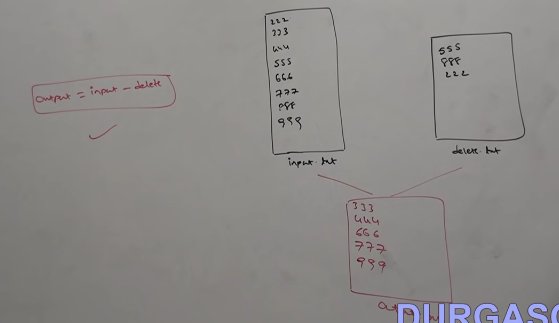 output = input - delete
222
333
444
555
666
777
888
999
input.txt
555
888
222
delete.txt
333
444
666
777
999
DURGASO